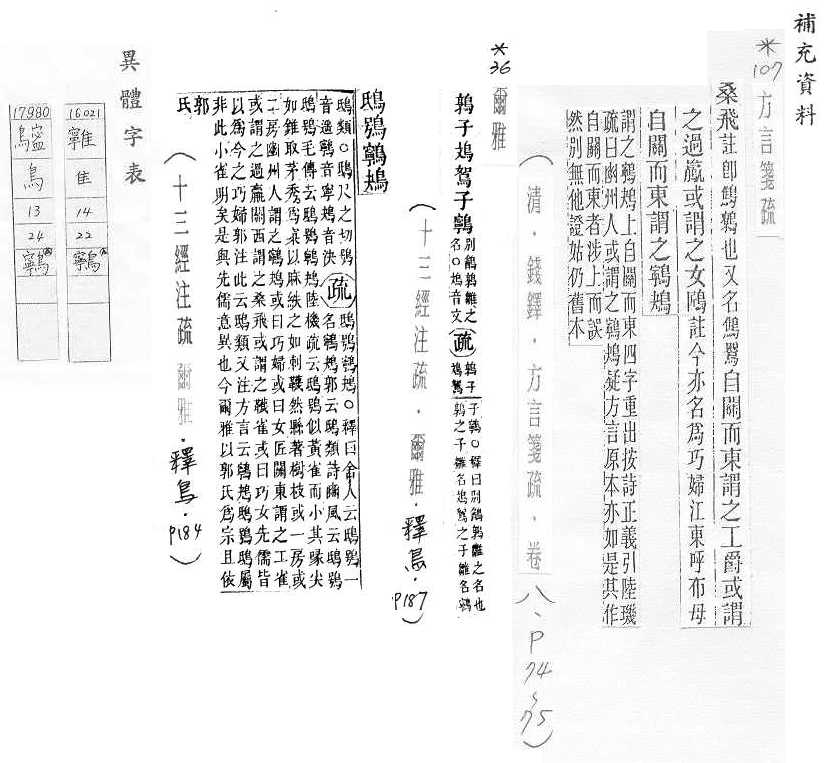 補充資料
*107 方言箋疏
桑飛註卽鷦鷯也又名鷦𪃦自關而東謂之工爵或謂
之過蠃或謂之女鴎註今亦名為巧婦江東呼布母
自關而東謂之鸋鴂
謂之鸋鴂上自關而東四字重出按詩正義引陸璣
疏曰幽州人或謂之鸋鴂疑方言原本亦如是其作
自關而東者涉上而誤
然別無他證姑仍舊本
（清．錢繹．方言箋疏．卷八、P74~75）
*36 爾雅
鶉子鳼鴽子鸋
別鵪鶉雛之
名○鳼音文
疏
鶉子
鳼鴽
子鸋○釋曰別鵪鶉雛之名也
鶉之子雛名鳼鴽之子雛名鸋
（十三經注疏．爾雅．釋鳥．P187）
鴟鴞鸋鴂
鴟類○鴟尺之切鴞
音遥鸋音寧鴂音決
疏
鴟鴞鸋鴂○釋曰舍人云鴟鴞一
名鸋鴂郭云鴟類詩豳風云鴟鴞
鴟鴞毛傳云鴟鴞鸋鴂陸機疏云鴟鴞似黃雀而小其喙尖
如錐取茅秀為窠以麻紩之如刺韈然縣著樹枝或一房或
二房幽州人謂之鸋鴂或曰巧婦或曰女匠關東謂之工雀
或謂之過蠃關西謂之桑飛或謂之韈雀或曰巧女先儒皆
以為今之巧婦郭注此云鴟類又注方言云鸋鴂鴟鴞鴟屬
非此小雀明矣是與先儒意異也今爾雅以郭氏為宗且依
郭
氏
（十三經注疏爾雅．釋鳥．P184）
異體字表
16021
隹
14
22
鸋
17980
鳥
13
24
鸋